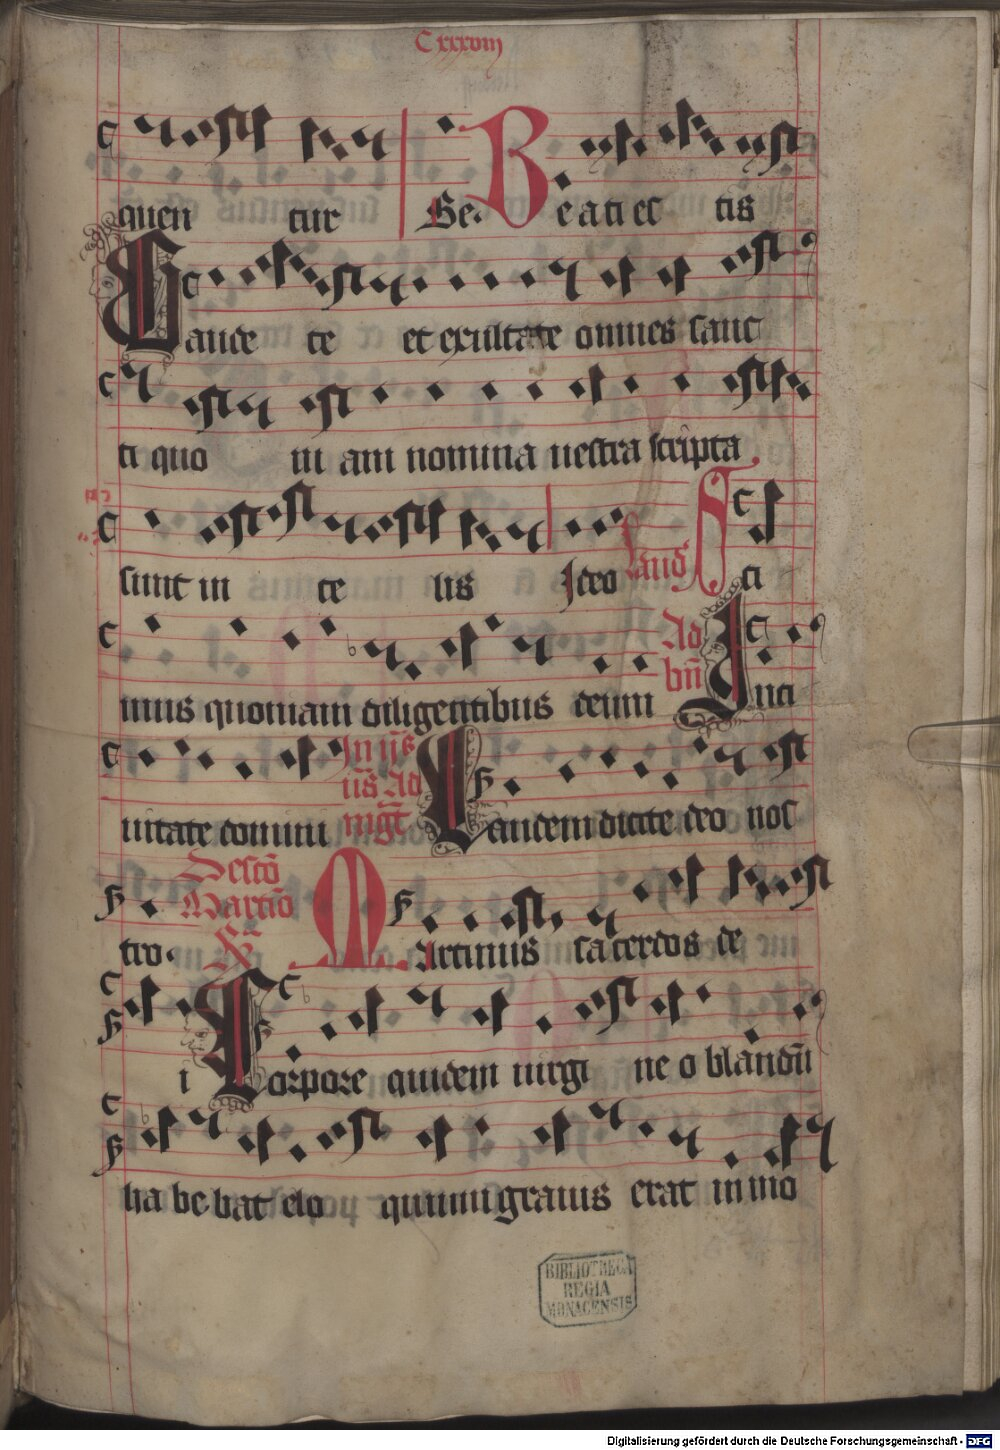 Cxxxviij
quen tur Se. Beati es tis
Gaude te et exultate omnes sanc
ti quo ni am nomina vestra scripta
sunt in ce lis Ideo Laud Sci
mus quoniam diligentibus deum Ad bn̄ Inci
vitate domini Ad mgt̄ Laudem dicite deo nos
tro. De sctō Martīo Martinus sacerdos de
i Corpore quidem virgi ne o blandū
ha be bat elo quium gravius erat in mo
BIBLIOTHECA
REGIA
MONACENSIS
Digitalisierung gefördert durch die Deutsche Forschungsgemeinschaft - DFG